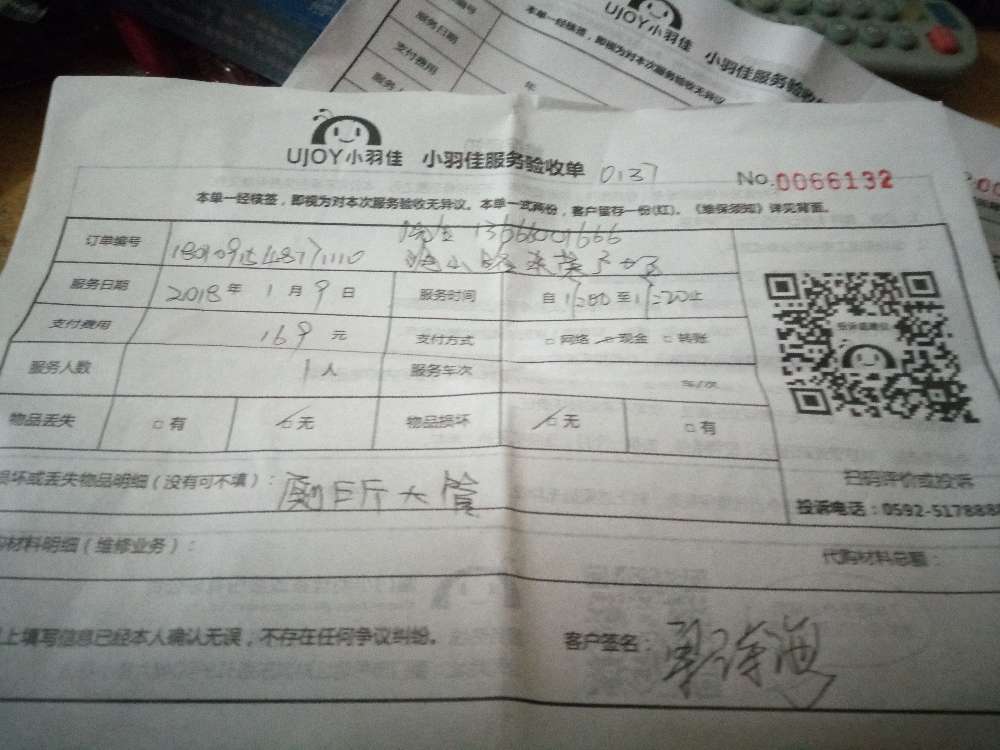 UJOY小羽佳 小羽佳服务验收单
服务日期
支付费用
年
本单一经核签,即视为对本次服务验收无异议
UJOY小羽佳 小羽佳服务验收单 0137
No.0066132
本单一经核签,即视为对本次服务验收无异议。本单一式两份,客户留存一份(红)。《维保须知》详见背面。
订单编号
服务日期 2018年1月9日 服务时间 自 至 止
支付费用 169元 支付方式 □网络 □现金 □转账
服务人数 1人 服务车次 车/次
物品丢失 □有 □无 物品损坏 □无 □有
损坏或丢失物品明细(没有可不填):
扫码评价或投诉
投诉电话:0592-5178888
购材料明细(维修业务): 代购材料总额:
上填写信息已经本人确认无误,不存在任何争议纠纷。 客户签名: